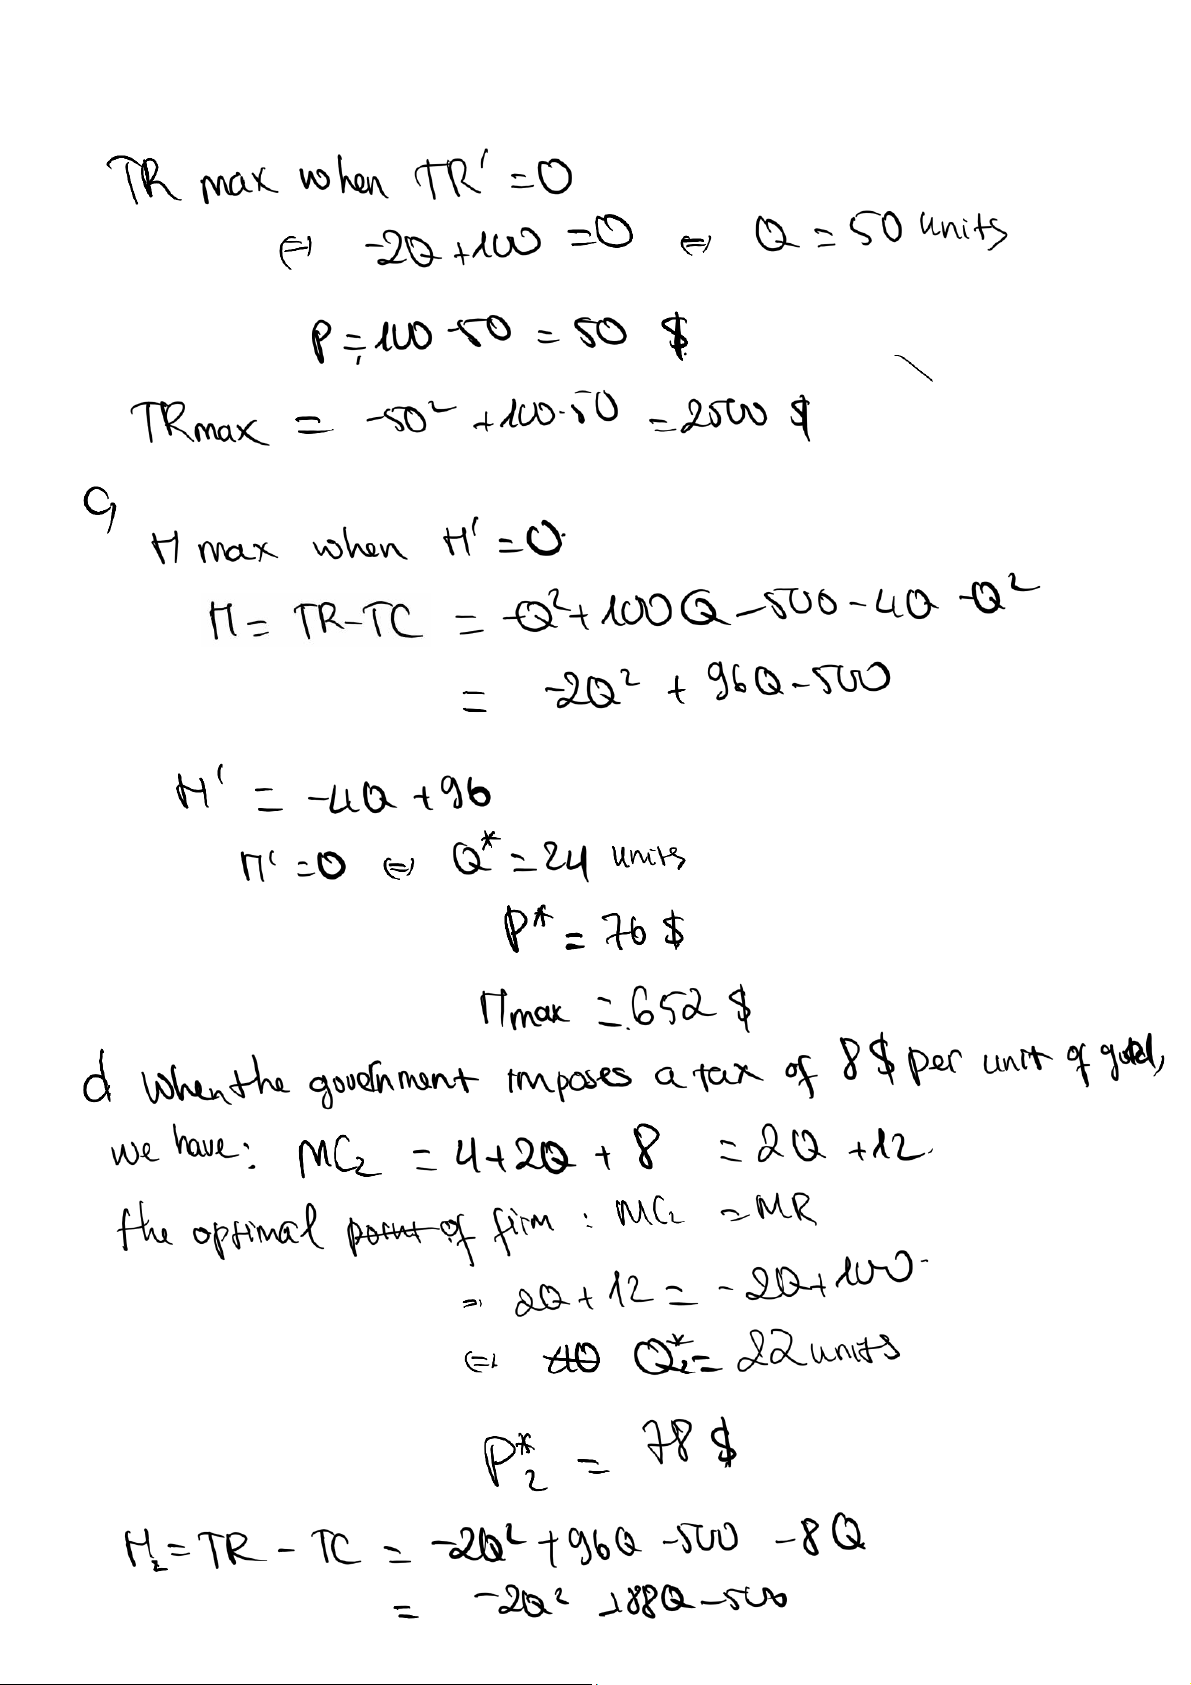 TR max when TR' = 0
⇔ -2Q + 100 = 0 ⇔ Q = 50 units
P = 100 - 50 = 50 $
TRmax = -50² + 100.50 = 2500 $
c,
Π max when Π' = 0
Π = TR - TC = -Q² + 100Q - 500 - 4Q - Q²
= -2Q² + 96Q - 500
Π' = -4Q + 96
Π' = 0 ⇔ Q* = 24 units
P* = 76 $
Πmax = 652 $
d When the government imposes a tax of 8 $ per unit of
we have: MC₂ = 4 + 2Q + 8 = 2Q + 12
the optimal point of firm : MC₂ = MR
= 2Q + 12 = -2Q + 100
⇔ 4Q Q₂* = 22 units
P₂* = 78 $
Π₂ = TR - TC = -2Q² + 96Q - 500 - 8Q
= -2Q² + 88Q - 500